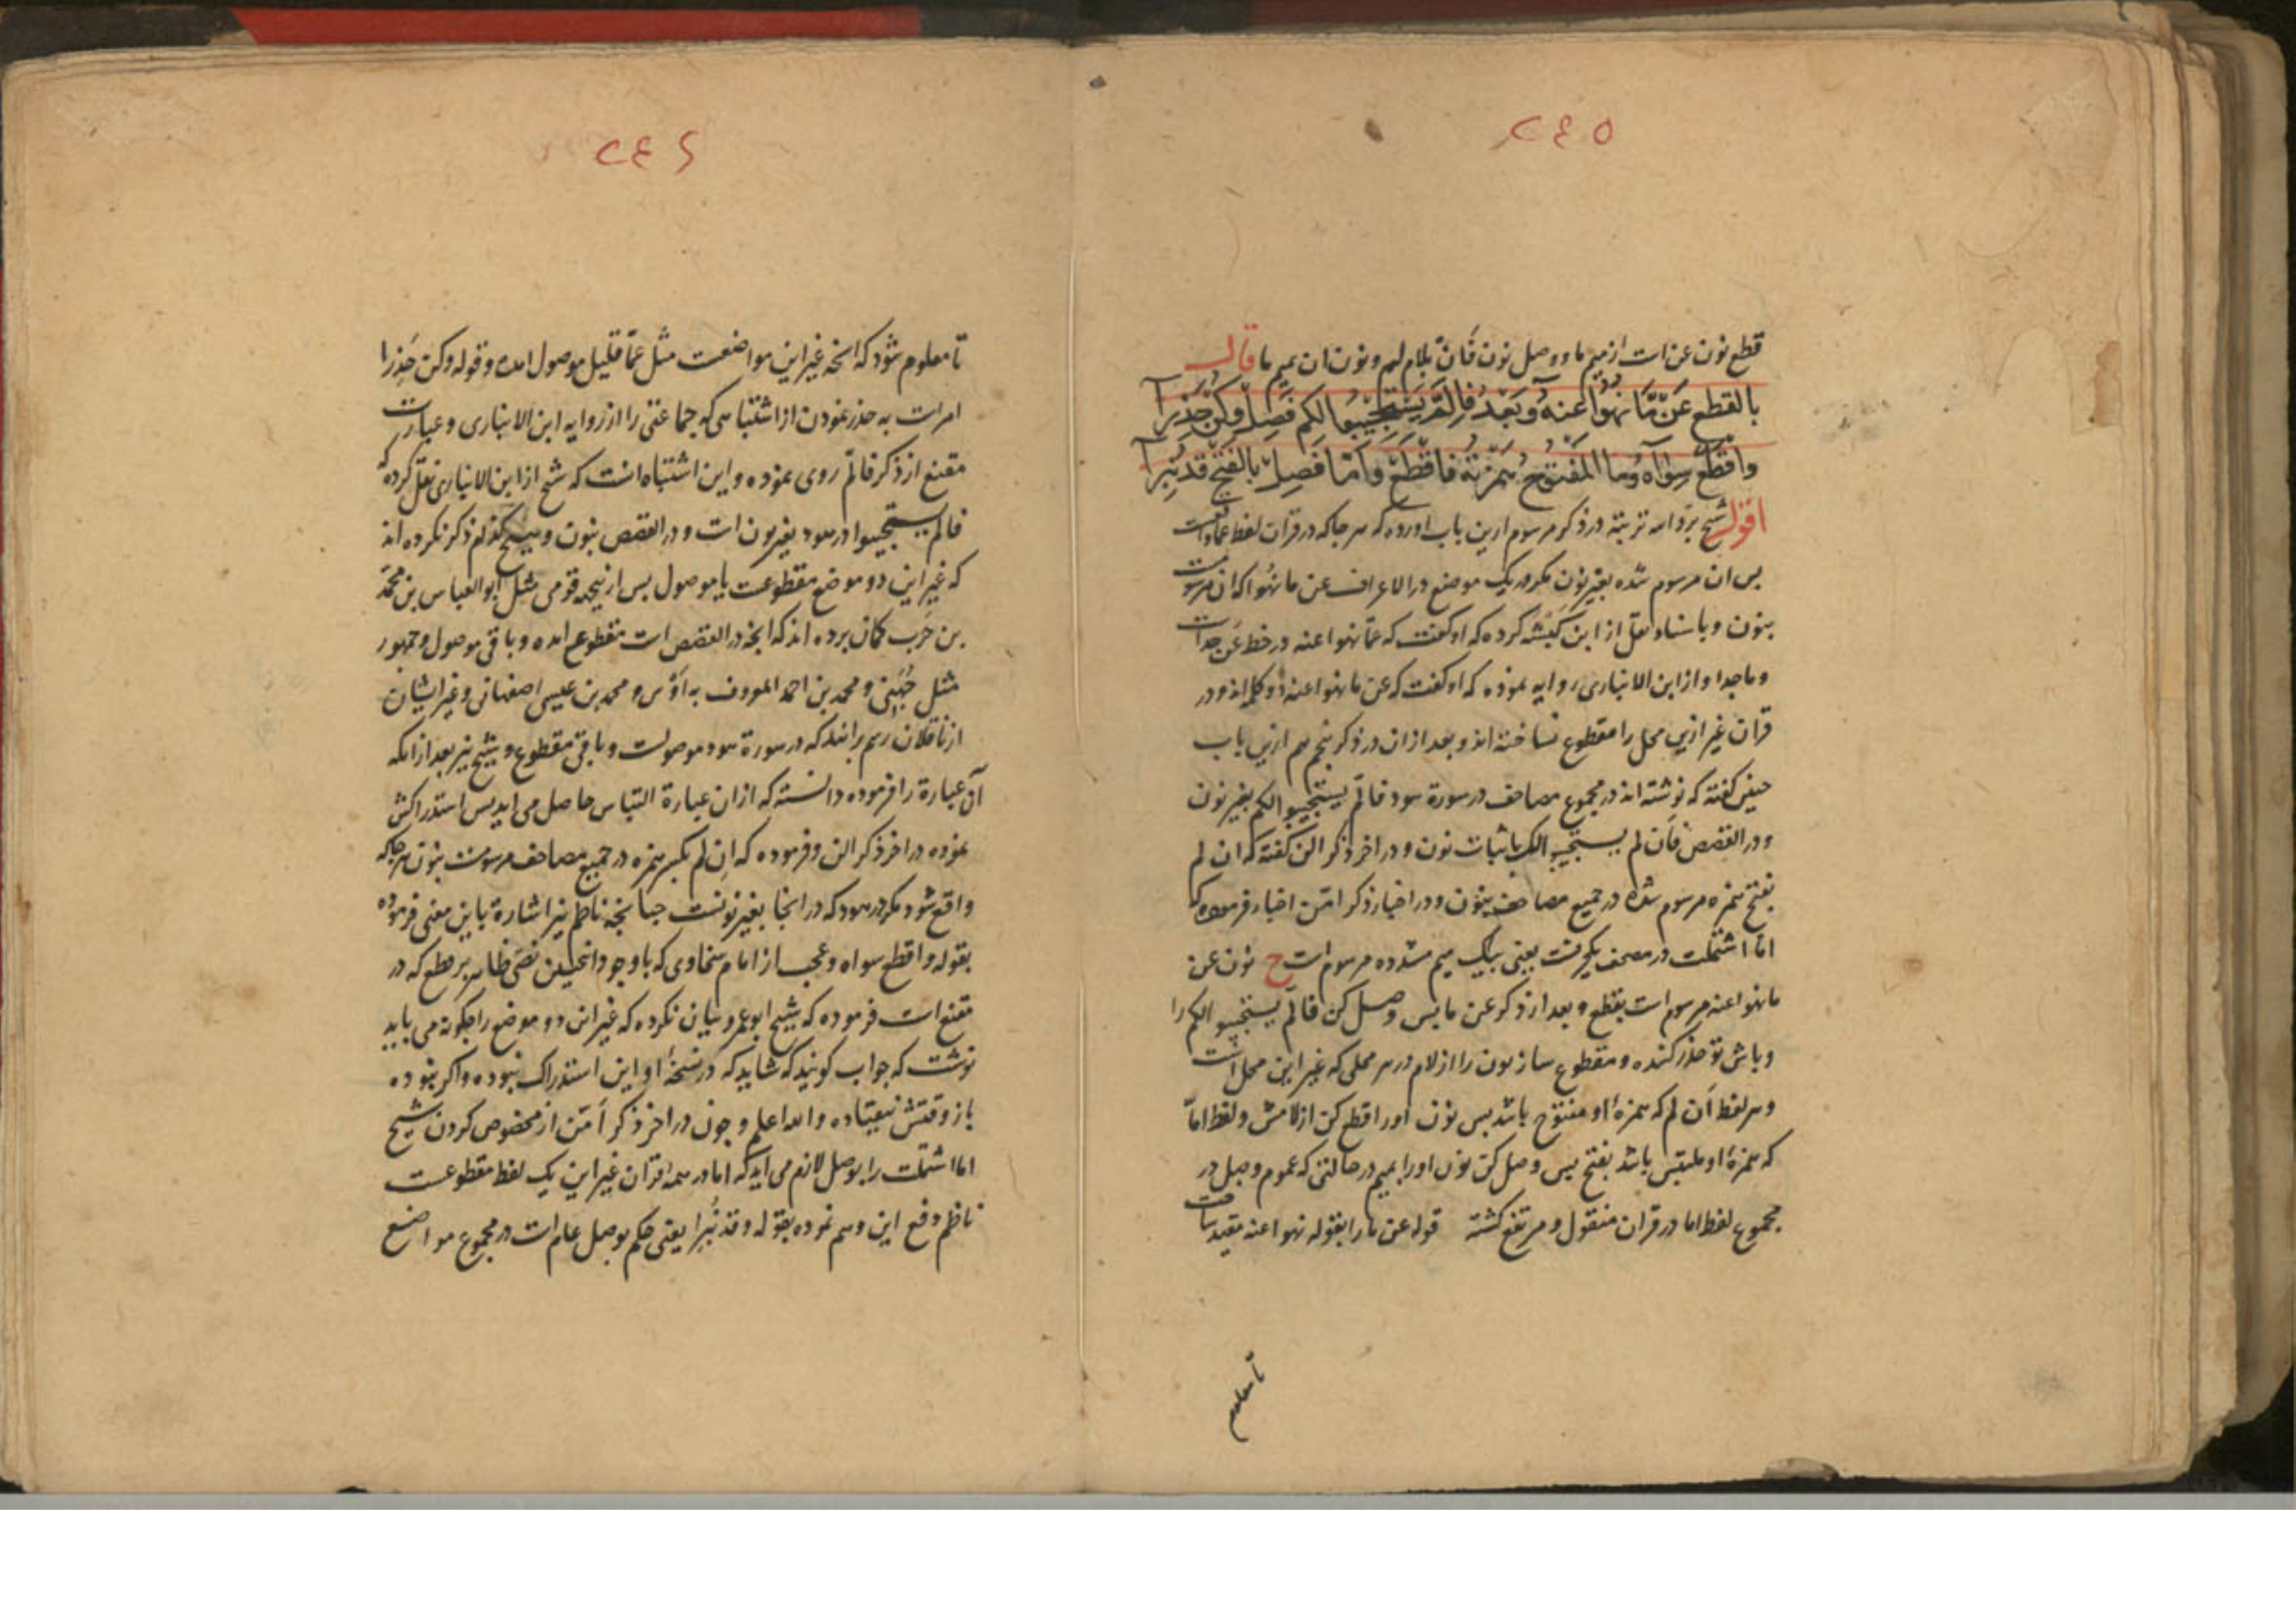 ۲۴۵
قطع نون عن است از میم ما و وصل نون فان بلام لم و نون ان بمیم ما قال
بالقطع عن ما نهوا عنه وبعد فالم يستجيبوا لكم فصل وكن حذرا
واقطع سواه وما المفتوح همزته فاقطع واما فصل بالفتح قد نبرا
اقول شیخ برد الله تربته در ذکر مرسوم ازین باب اورده که هر جا که در قران لفظ عما
بس ان مرسوم شده بغیر نون مکر در یک موضع در الاعراف عن ما نهوا که ان
بنون و باسناد نقل از ابن کیشه کرده که او کفت که عما نهوا عنه در خط عن جداست
و ما جدا و از ابن الانباری روایه نموده که او کفت که عن ما نهوا عنه دو کلمه اند و در
قران غیر ازین محل را مقطوع نساخته اند و بعد ازان در ذکر پنجم هم ازین باب
چنین کفته که نوشته اند در مجموع مصاحف در سورة هود فالم یستجیبوا لکم بغیر نون
و در القصص فان لم یستجیبوا لک باثبات نون و در اخر ذکر الن کفته که ان لم
بفتح همزه مرسوم شده در جمیع مصاحف بنون و در اخبار ذکر امن اخبار فرموده که
اما اشتملت در مصحف یکحرفست یعنی بیک میم مشدده مرسوم است ح نون عن
ما نهوا عنه مرسوم است بقطع و بعد از ذکر عن ما بس وصل کن فالم یستجیبوا لکم را
و باش تو حذر کننده و مقطوع ساز نون را از لام در هر محلی که غیر این محل است
و هر لفظ ان لم که همزهٔ او مفتوح باشد بس نون او را قطع کن از لامش و لفظ اما
که همزهٔ او ملتبس باشد بفتح بس وصل کن نون او را بمیم در حالتی که عموم وصل در
مجموع لفظ اما در قران منقول و مرتفع کشته قوله عن ما را بقوله نهوا عنه مقید ساخت
تا معلوم
۲۴۶
تا معلوم شود که انچه غیر این مواضعست مثل عما قلیل موصول امده و قوله وکن حذرا
امرات به حذر نمودن از اشتباهی که جماعتی را از روایه ابن الانباری و عبارت
مقنع از ذکر فالم روی نموده و این اشتباه انست که شیخ از ابن الانباری نقل کرده که
فالم یستجیبوا در هود بغیر نون است و در القصص بنون و هیچ کدام ذکر نکرده اند
که غیر این دو موضع مقطوعست یا موصول بس ازینجهه قومی مثل ابو العباس بن محمد
بن حرب کمان برده اند که انچه در القصص است مقطوع امده و باقی موصول و جمهور
مثل جهنی و محمد بن احمد المعروف به اوس و محمد بن عیسی اصفهانی و غیر ایشان
از ناقلان رسم برانند که در سورة هود موصولست و باقی مقطوع و شیخ نیز بعد از انکه
آن عبارة را فرموده دانسته که ازان عبارة التباس حاصل می اید بس استدراکش
نموده در اخر ذکر الن و فرموده که ان لم بکسر همزه در جمیع مصاحف مرسومست بنون هر جا که
واقع شود مکر در هود که در انجا بغیر نونست چنانچه ناظم نیز اشارة باین معنی فرموده
بقوله واقطع سواه و عجب از امام سخاوی که با وجود انچنین نصی ظاهر بر قطع که در
مقنع است فرموده که شیخ ابو عمرو بیان نکرده که غیر این دو موضع را چکونه می باید
نوشت که جواب کویند که شاید که در نسخهٔ او این استدراک نبوده و اکر بوده
باز وقتش نیفتاده و الله اعلم و چون در اخر ذکر امن از مخصوص کردن شیخ
اما اشتملت را بوصل لازم می اید که اما در همه قران غیر این یک لفظ مقطوعست
ناظم دفع این وهم نموده بقوله وقد نبرا یعنی حکم بوصل عام است در مجموع مواضع